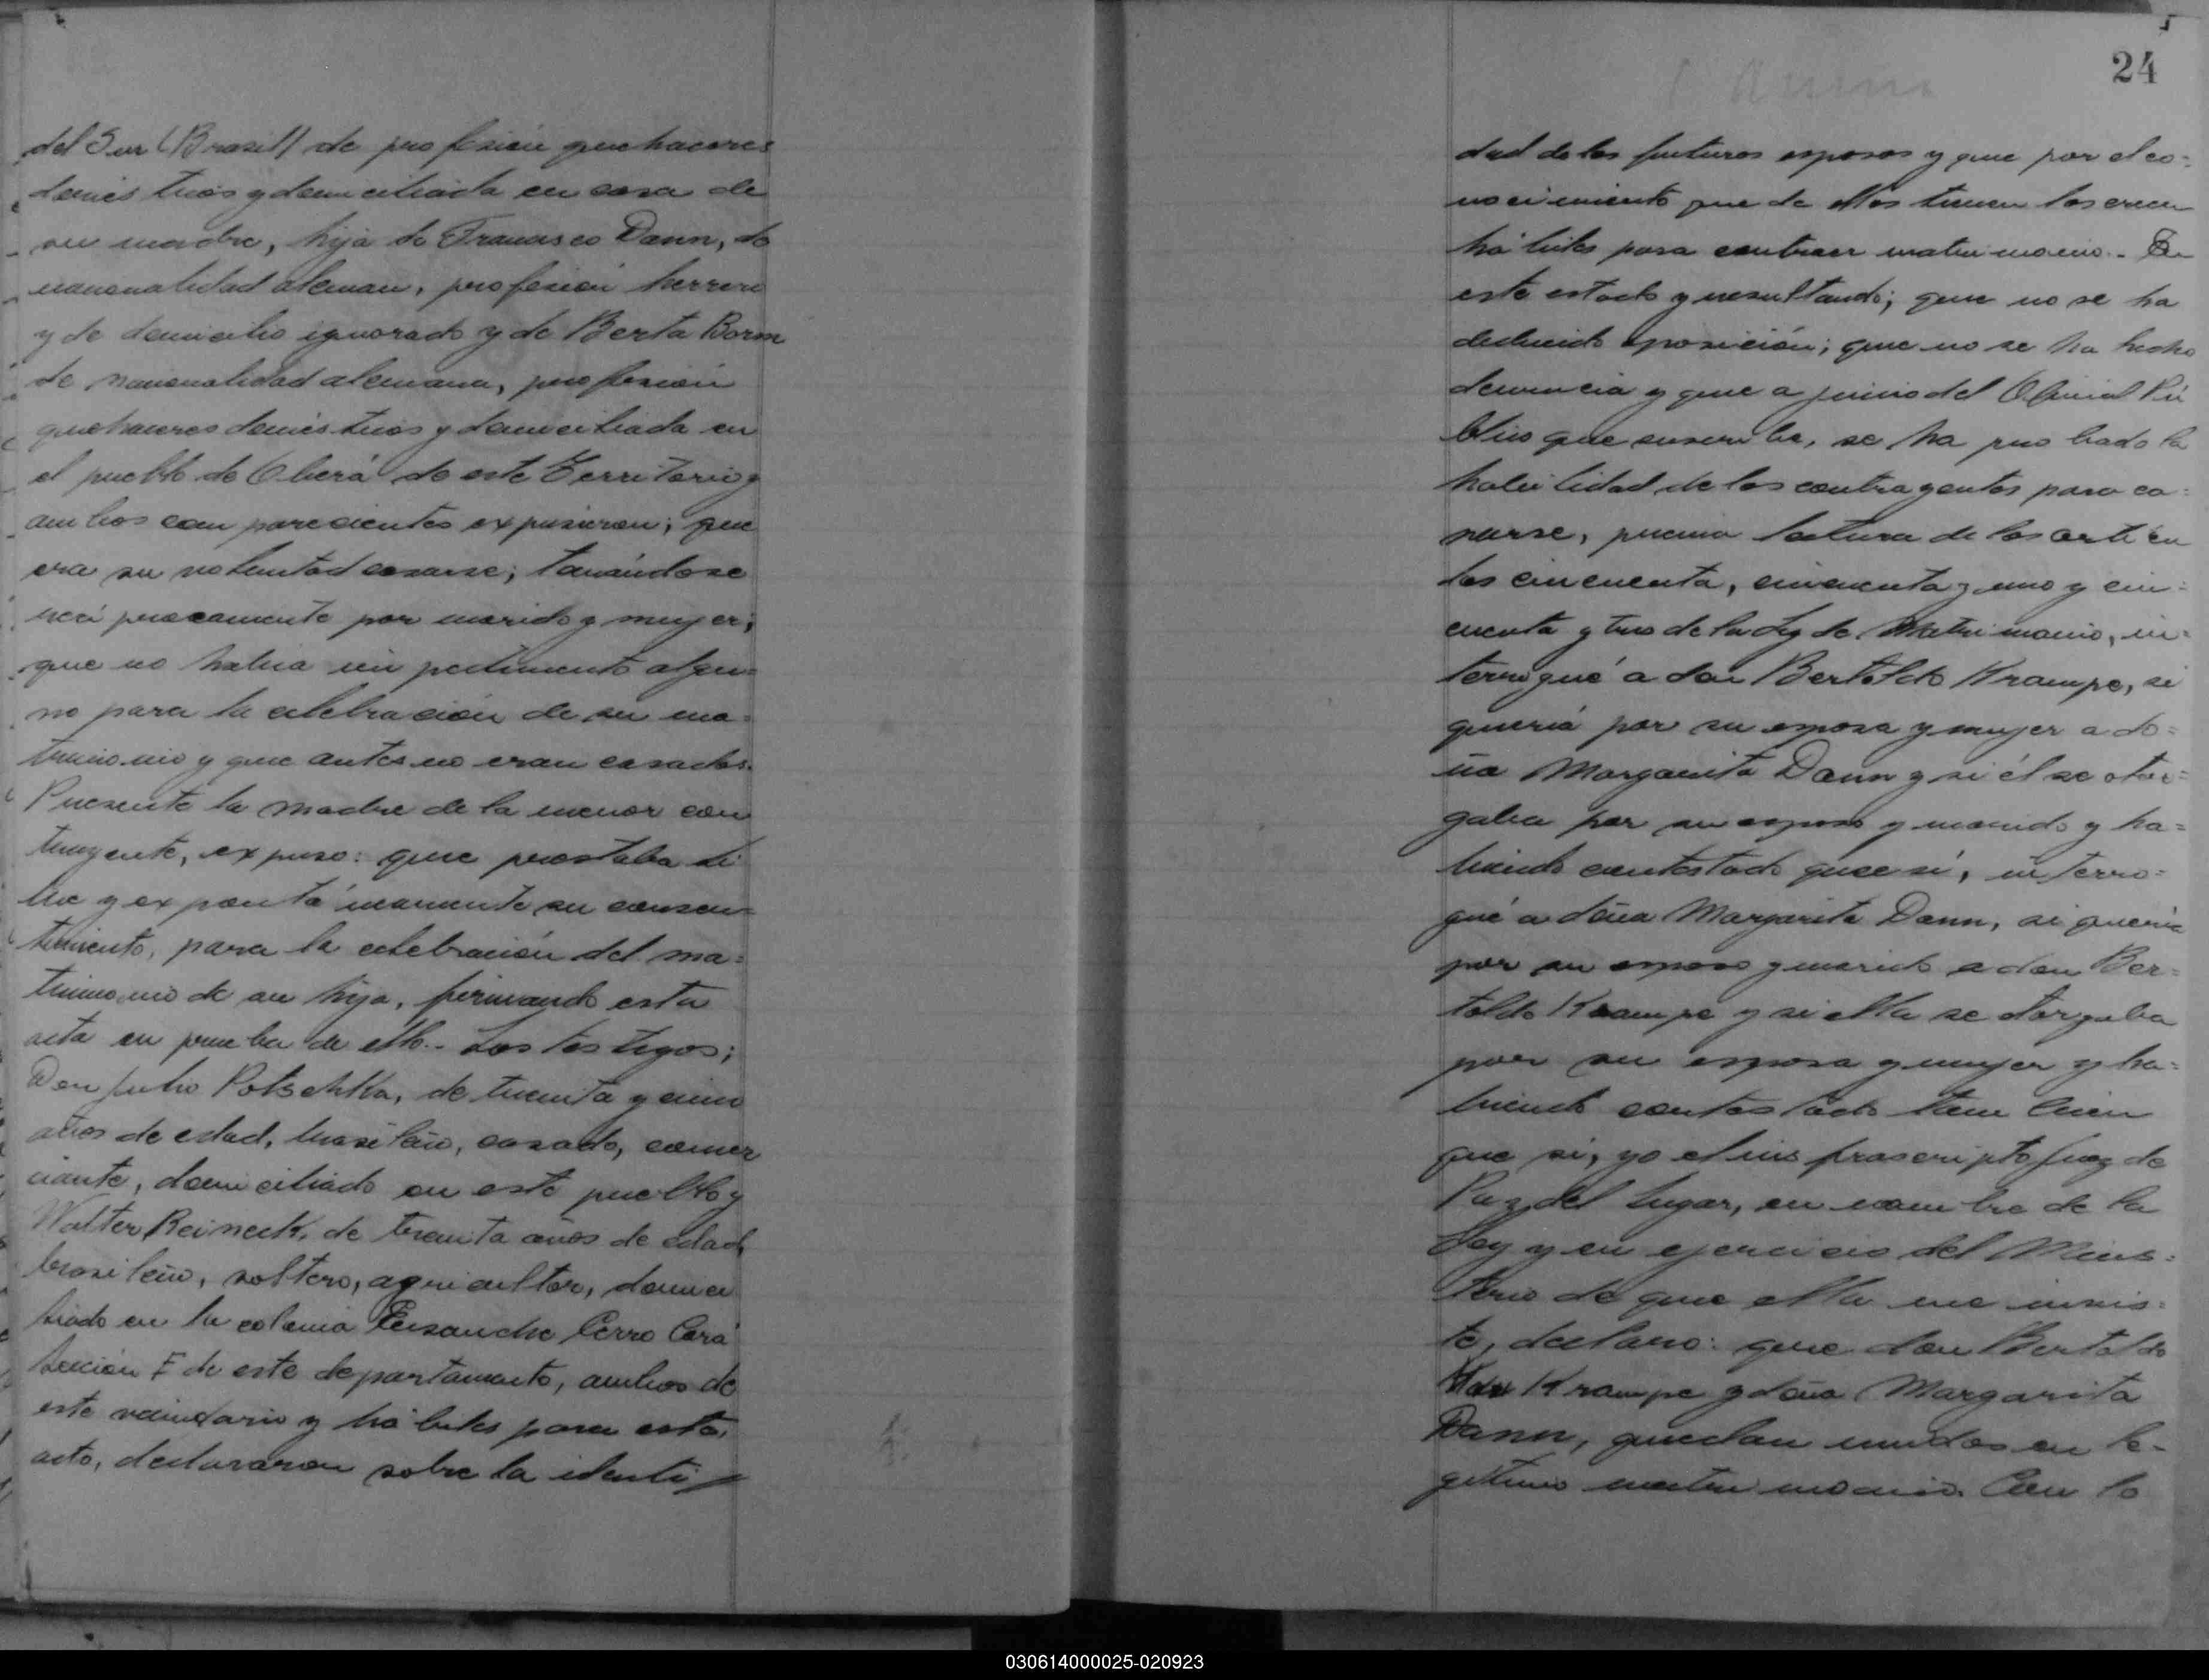 del Sur (Brasil) de profesión quehaceres
domésticos y domiciliada en casa de
su madre, hija de Francisco Dann, de
nacionalidad aleman, profesión herrero
y de domicilio ignorado y de Berta Borm
de nacionalidad alemana, profesión
quehaceres domésticos y domiciliada en
el pueblo de Oberá de este Territorio y
ambos comparecientes expusieron; que
era su voluntad casarse; tomándose
recíprocamente por marido y mujer;
que no habia impedimento algu=
no para la celebración de su ma=
trimonio y que antes no eran casados.
Presente la madre de la menor con
trayente, expuso: que prestaba li
bre y expontáneamente su consen=
timiento, para la celebración del ma=
trimonio de su hija, firmando esta
acta en prueba de ello.- Los testigos;
Don Julio Potschka, de treinta y cinco
años de edad, brasileño, casado, comer
ciante, domiciliado en este pueblo y
Walter Reineck, de treinta años de edad,
brasileño, soltero, agricultor, domici
liado en la colonia Ensanche Cerro Corá
Sección F de este departamento, ambos de
este vecindario y hábiles para este
acto, declararon sobre la identi
24
dad de los futuros esposos y que por el co=
nocimiento que de ellos tienen los creen
hábiles para contraer matrimonio.- En
este estado y resultando; que no se ha
deducido oposición; que no se ha hecho
denuncia y que a juicio del Oficial Pú
blico que suscribe, se ha probado la
habilidad de los contrayentes para ca=
sarse, previa lectura de los artícu
los cincuenta, cincuenta y uno y cin=
cuenta y tres de la Ley de Matrimonio, in=
terrogué a don Bertoldo Krampe, si
quería por su esposa y mujer a do=
ña Margarita Dann y si él se otor=
gaba por su esposo y marido y ha=
biendo contestado que sí, interro=
gué a doña Margarita Dann, si quería
por su esposo y marido a don Ber=
toldo Krampe y si ella se otorgaba
por su esposa y mujer y ha=
biendo contestado tambien
que sí, yo el infrascripto Juez de
Paz del lugar, en nombre de la
Ley y en ejercicio del Minis=
terio de que ella me invis=
te, declaro: que don Bertoldo
Krampe y doña Margarita
Dann, quedan unidos en le-
gitimo matrimonio. Con lo
030614000025-020923